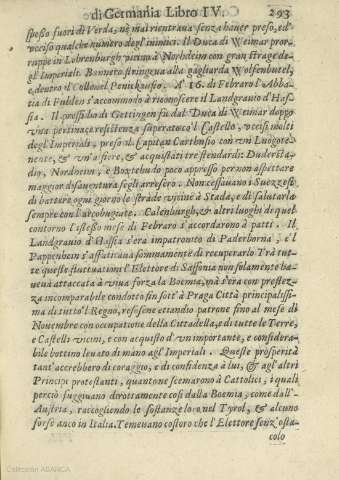 di Germania Libro IV. 293
spesso fuori di Verda, nè mai rientrava senza hauer preso, ed'
vcciso qualche número degl'inimici. Il Duca di Weimar pror-
ruppe in Lohrenburgh vicina à Norhdeim con gran strage de-
gl'Imperiali. Bonneto stringeua alla gagliarda Wolfenbutel,
e dentro il Collonel Penickausio. A' 16. di Febraro l'Abba-
tia di Fulden s'accommodò à riconoscere il Landgrauio d'Has-
sia. Il possesso di Gettingen fù dal Duca di Weimar doppo
vna pertinace resistenza superato co'l Castello, vccisi molti
degl'Imperiali, preso dì Capitan Carthusio con vn Luogote-
nente, & vn'alfiere, & acquistati tre stendardi: Duderstà-
dio, Nordheim, e Boxtehudo poco appresso per non aspettare
maggior disauentura segli arresero. Non cessauano i Suezzesi
di battere ogni giorno le strade vicine à Stada, e di salutarla
sempre con l'arcobugiate. Calenburgh, & altri luoghi di quel
contorno l'istesso mese di Febraro s'accordarono à patti. Il
Landgrauio d'Hassia s'era impatronito di Paderborna, e'l
Pappenheim s'affaticaua sommamente di recuperarlo Trà tut-
te queste fluttuationi l'Elettore di Sassonia non solamente ha-
ueua attaccata à viua forza la Boemia, mà s'era con prestez-
za incomparabile condotto fin sott'à Praga Città principalissi-
ma di tutto'l Regno, resosene etiandio patrone fino al mese di
Nouembre con occupatione della Cittadella, e di tutte le Terre,
e Castelli vicini, e con acquisto d'vn importante, e considera-
bile bottino leuato di mano agl'Imperiali. Queste prosperità
tant'accrebbero di coraggio, e di confidenza à lui, & agl'altri
Principi protestanti, quantone scemarono à Cattolici, i quali
perciò fuggiuano dirottamente così dalla Boemia, come dall'-
Austria, raccogliendo le sostanze loro nel Tyrol, & alcuno
forse anco in Italia. Temeuano costoro che l'Elettore senz'osta-
colo
Colección ABANCA